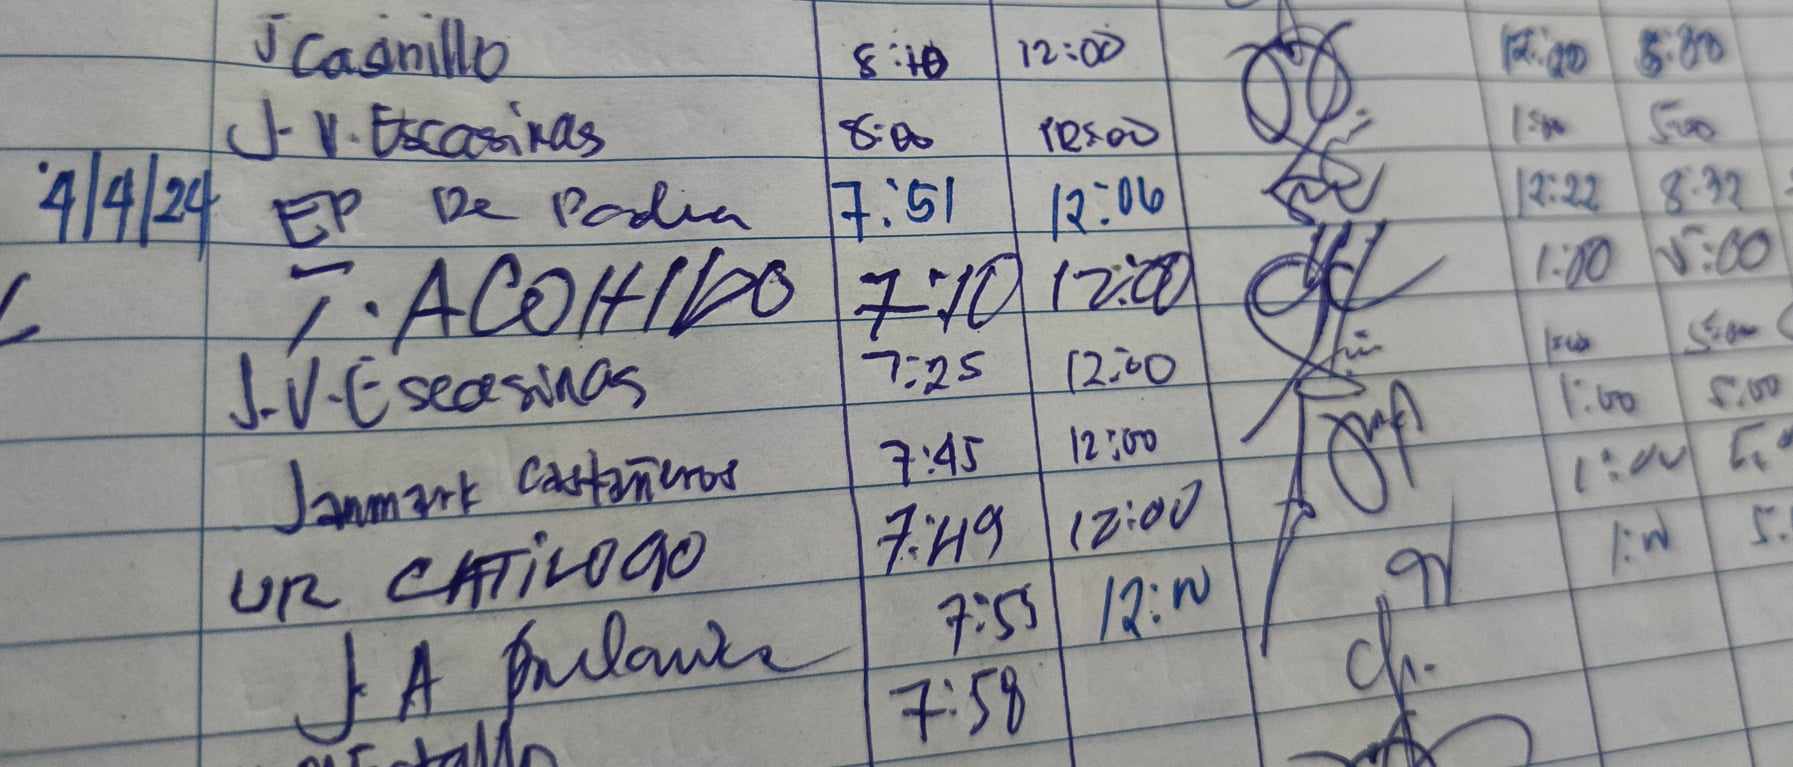 J Casinillo 8:10 12:00 12:20 5:00
J. V. Escasinas 8:00 12:00 1:00 5:00
4/4/24 EP De Padua 7:51 12:06 12:22 8:32
T. ACOHIDO 7:10 12:00 1:00 5:00
J.V. Escasinas 7:25 12:00 1:00 5:00
Janmark Castañeros 7:45 12:00 1:00 5:00
UR CATILOGO 7:49 12:00 1:00
J A 7:55 12:00 1:00
7:58